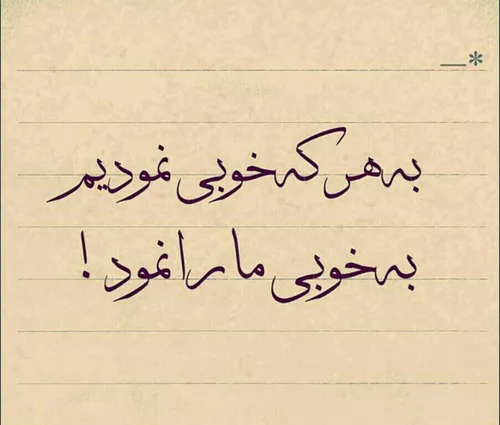 *__
به هر که خوبی نمودیم
به خوبی ما را نمود !